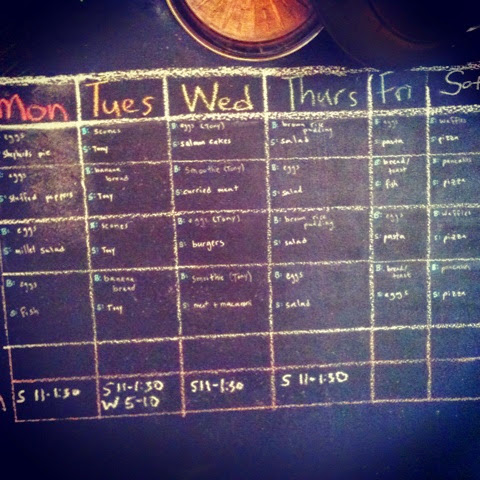 Mon Tues Wed Thurs Fri Sat
eggs
shepherds pie
B: scones
S: Tony
B: eggs (Tony)
S: salmon cakes
B: brown rice
pudding
S: salad
B: eggs
S: pasta
B: waffles
S: pizza
eggs
stuffed peppers
B: banana
bread
S: Tony
B: smoothie (Tony)
S: curried meat
B: eggs
S: salad
B: bread/
toast
S: fish
B: pancakes
S: pizza
B: eggs
S: millet salad
B: scones
S: Tony
B: eggs (Tony)
S: burgers
B: brown rice
pudding
S: salad
B: eggs
S: pasta
B: waffles
S: pizza
B: eggs
S: fish
B: banana
bread
S: Tony
B: smoothie (Tony)
S: meat + macaroni
B: eggs
S: salad
B: bread/
toast
S: eggs
B: pancakes
S: pizza
S 11-1:30
S 11-1:30
W 5-10
S 11-1:30
S 11-1:30